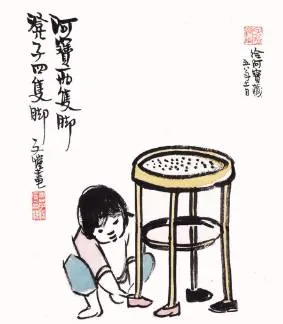 阿寶两隻脚
凳子四隻脚 子愷畫
给阿寶藏